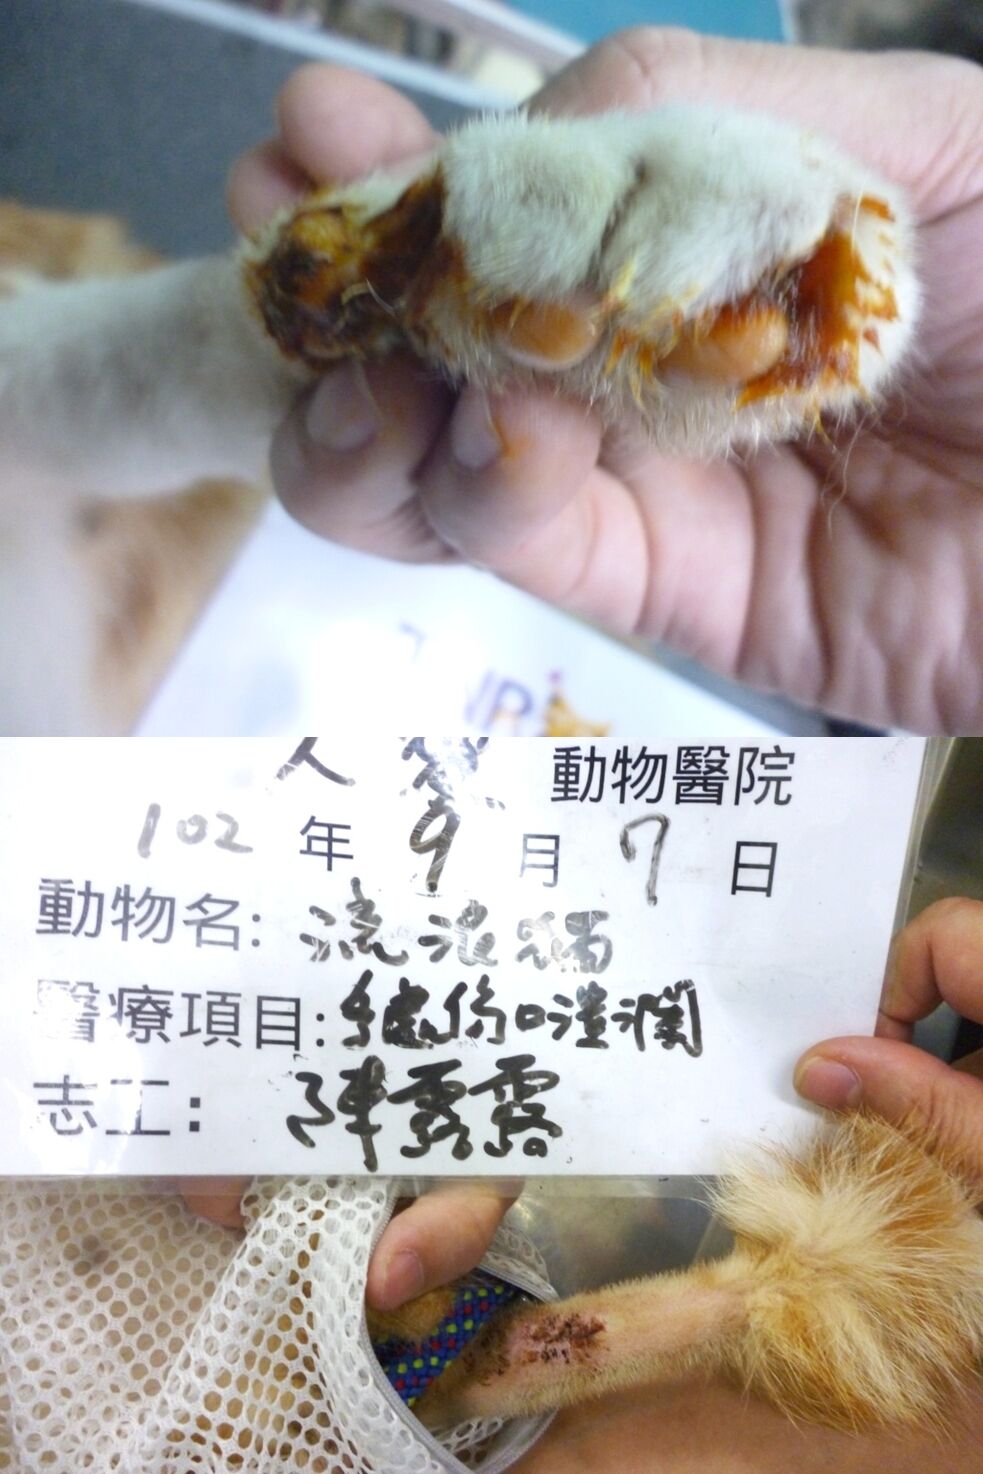 NR
動物醫院
102 年 9 月 7 日
動物名: 流浪貓
醫療項目: 傷口潰爛
志工: 陳露露